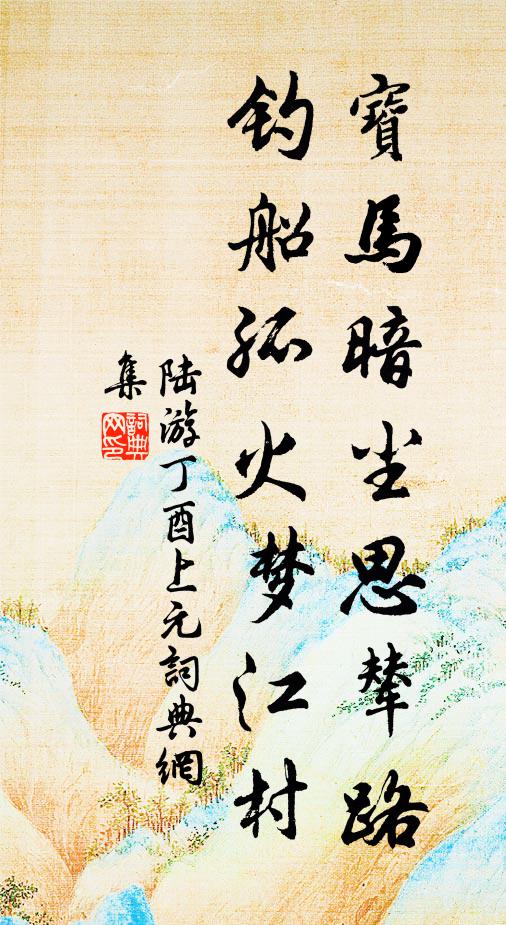 寶馬暗尘思輦路
钓船孤火梦江村
陆游丁酉上元詞典網
集
詞典网印